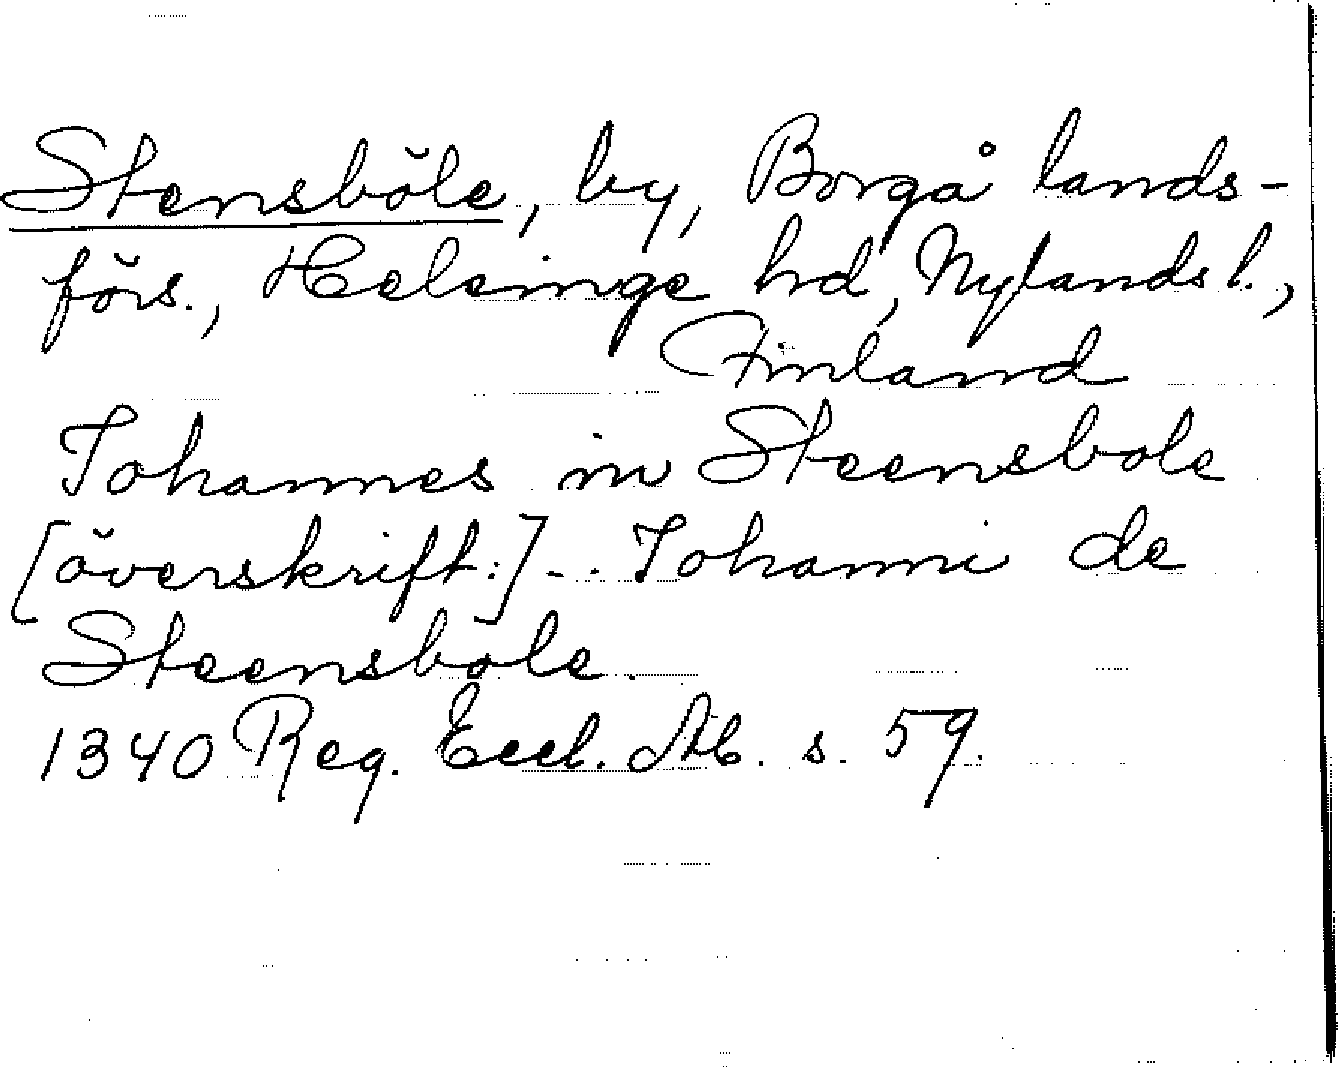 Stensböle, by, Borgå lands-
förs., Helsinge hd, Nylands l.,
Finland
Johannes in Steensbole
[överskrift:] - . . Johanni de
Steensbole.
1340 Reg. Eccl. Ab. s. 59.